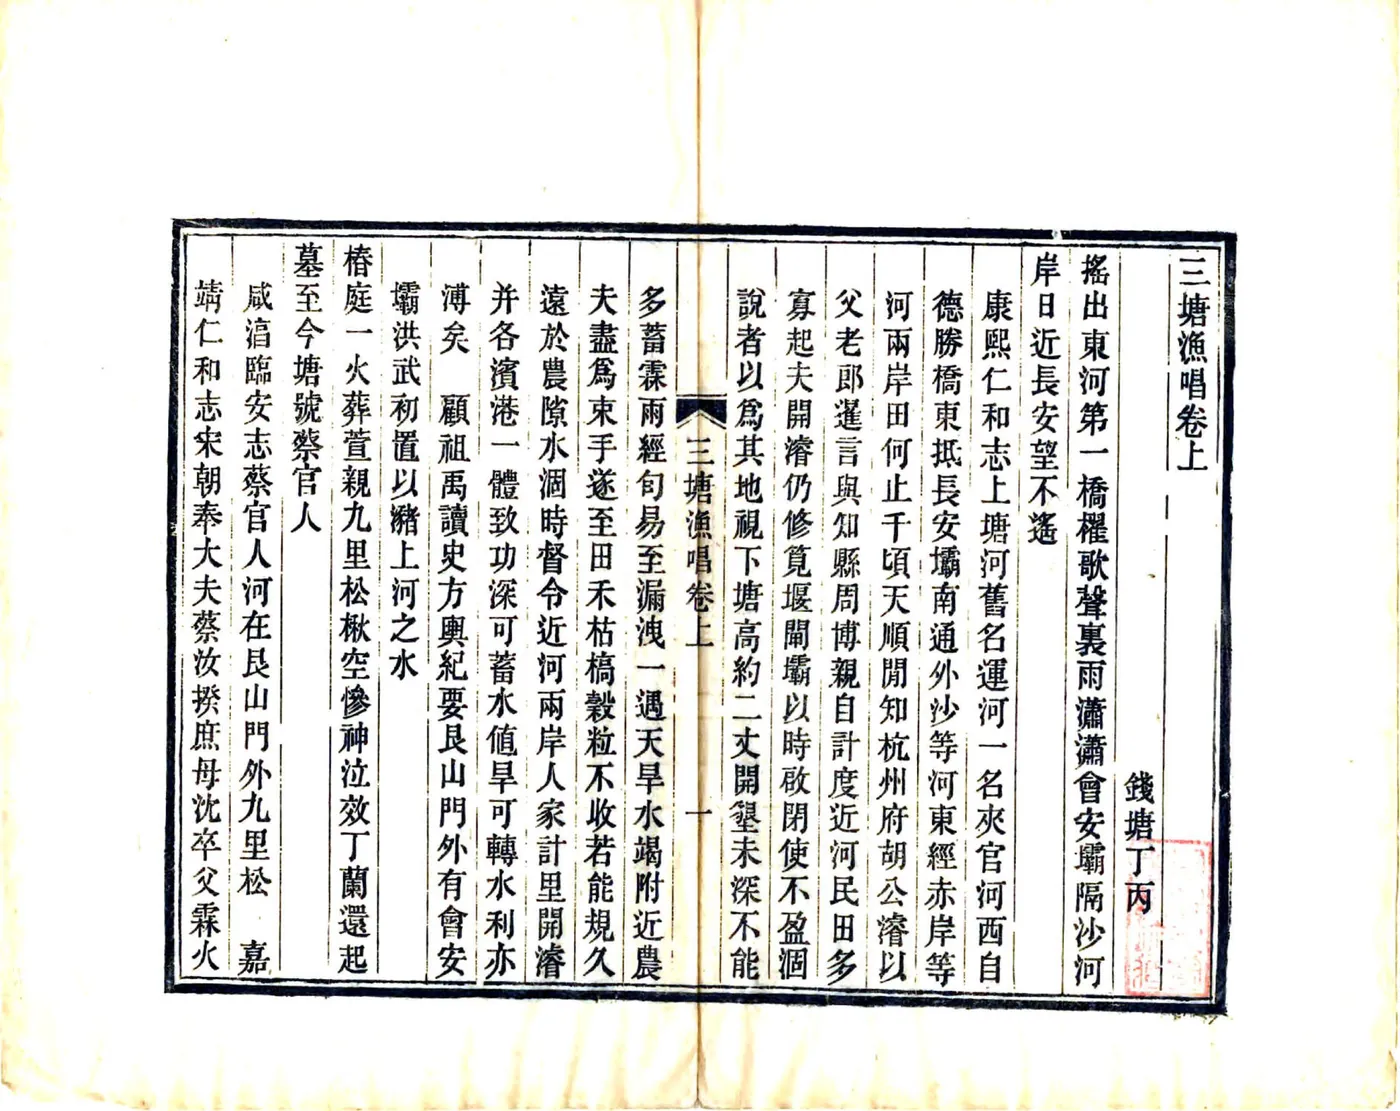 三塘漁唱卷上
錢塘丁丙
搖出東河第一橋櫂歌聲裏雨瀟瀟會安壩隔沙河
岸日近長安望不遙
康熙仁和志上塘河舊名運河一名夾官河西自
德勝橋東抵長安壩南通外沙等河東經赤岸等
河兩岸田何止千頃天順閒知杭州府胡公濬以
父老郎暹言與知縣周博親自計度近河民田多
寡起夫開濬仍修筧堰閘壩以時啟閉使不盈涸
說者以爲其地視下塘高約二丈開墾未深不能
三塘漁唱卷上
一
多蓄霖雨經旬易至漏洩一遇天旱水竭附近農
夫盡爲束手遂至田禾枯槁穀粒不收若能規久
遠於農隙水涸時督令近河兩岸人家計里開濬
并各濱港一體致功深可蓄水值旱可轉水利亦
溥矣　顧祖禹讀史方輿紀要艮山門外有會安
壩洪武初置以瀦上河之水
椿庭一火葬萱親九里松楸空慘神泣效丁蘭還起
墓至今塘號蔡官人
咸湻臨安志蔡官人河在艮山門外九里松　嘉
靖仁和志宋朝奉大夫蔡汝揆庶母沈卒父霖火